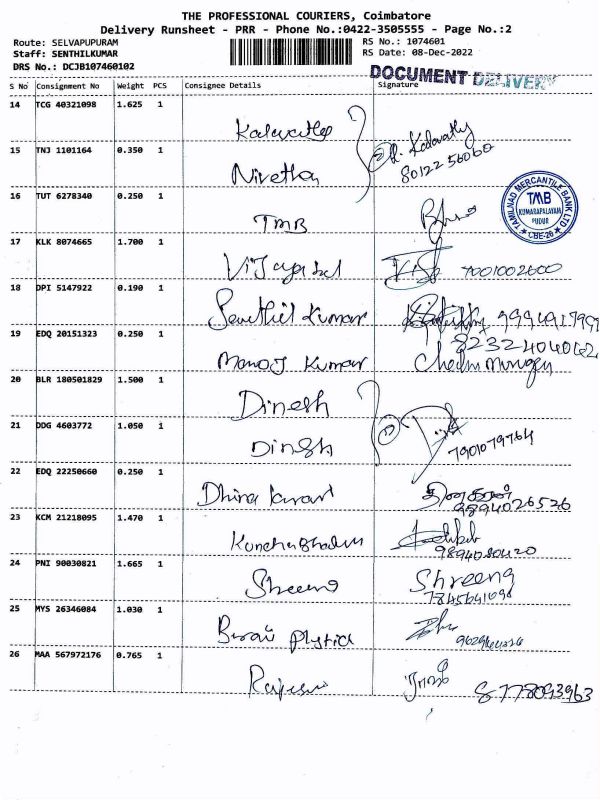 THE PROFESSIONAL COURIERS, Coimbatore
Delivery Runsheet - PRR - Phone No.:0422-3505555 - Page No.:2
Route: SELVAPUPURAM
RS No.: 1074601
Staff: SENTHILKUMAR
RS Date: 08-Dec-2022
DRS No.: DCJB107460102
DOCUMENT DELIVERY
S No Consignment No Weight PCS Consignee Details Signature
14 TCG 40321098 1.625 1
Kalavathy
Kalavathy
15 TNJ 1101164 0.350 1
8012256060
Nivetha
16 TUT 6278340 0.250 1
TMB
TAMILNAD MERCANTILE BANK LTD
TMB
KUMARAPALAYAM
PUDUR
CBE-26
17 KLK 8074665 1.700 1
7001002600
18 DPI 5147922 0.190 1
Senthil Kumar
19 EDQ 20151323 0.250 1
Manoj Kumar
20 BLR 180501829 1.500 1
Dinesh
21 DDG 4603772 1.050 1
Dinesh 7901079764
22 EDQ 22250660 0.250 1
9894026526
23 KCM 21218095 1.470 1
24 PNI 90030821 1.665 1
Sheena Shreena
25 MYS 26346084 1.030 1
26 MAA 567972176 0.765 1
8778093963